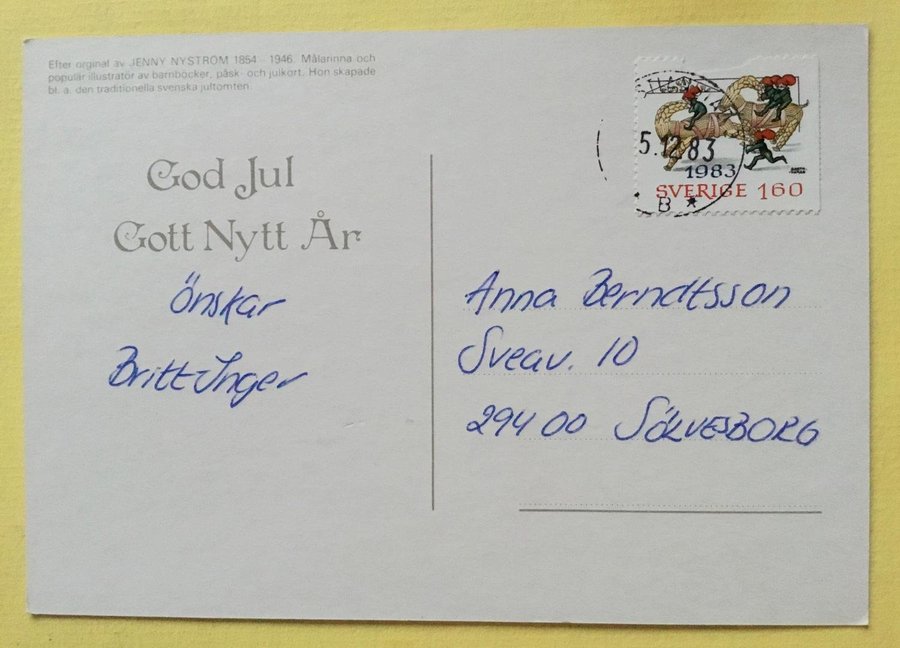 Efter orginal av JENNY NYSTRÖM 1854 - 1946. Målarinna och
populär illustratör av barnböcker, påsk- och julkort. Hon skapade
bl. a. den traditionella svenska jultomten.
God Jul
Gott Nytt År
Önskar
Britt-Inger
5.12.83
B ★
1983
SVERIGE 160
Anna Berndtsson
Sveav. 10
294 00 SÖLVESBORG